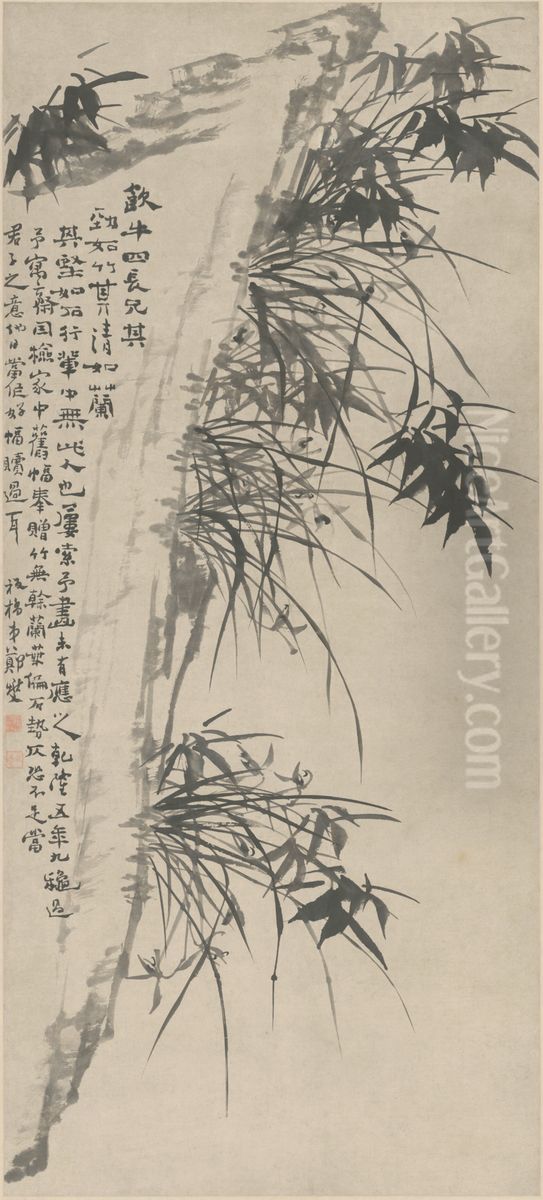 飲牛四長兄其
勁如竹其清如蘭
其堅如石行輩中無此人也屢索予畫未有應之乾隆五年九秋過
予寓齋因撿家中舊幅奉贈竹無榦蘭葉偏石勢仄恐不足當
君子之意他日當作好幅贖過耳
板橋弟鄭燮